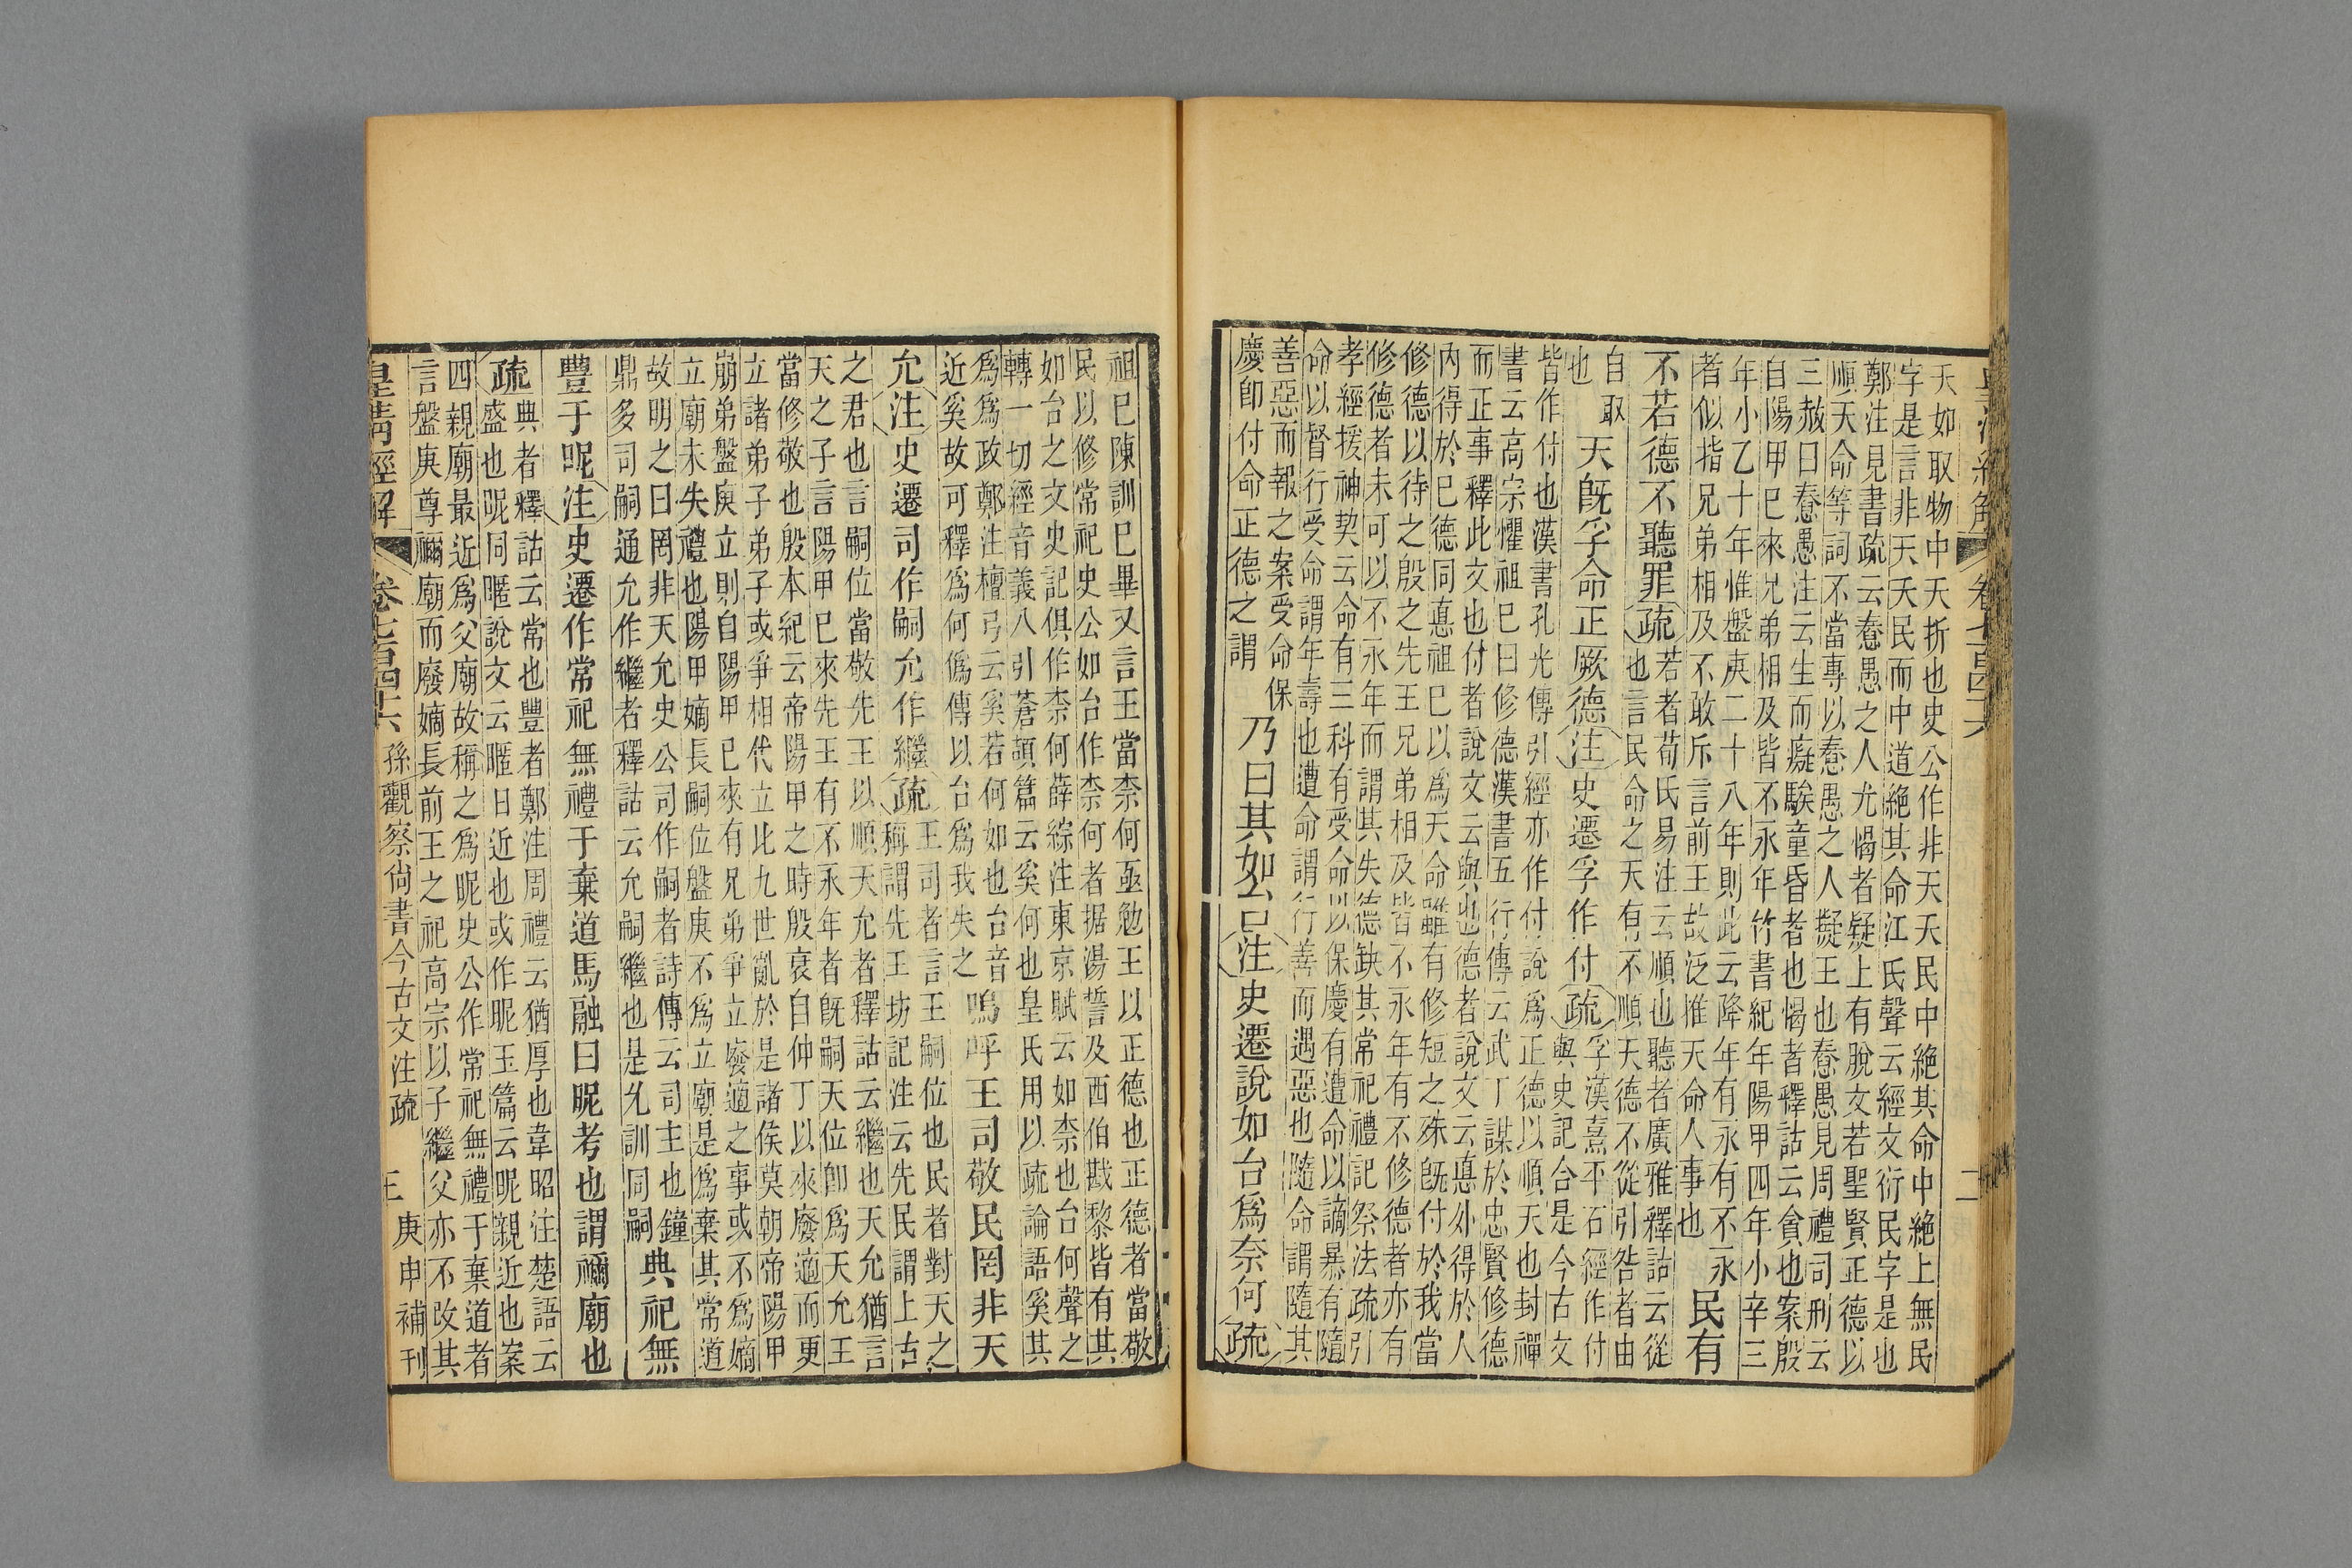 皇清經解 卷七百四十六 二
夭如取物中夭折也史公作非天夭民中絕其命中絕上無民
字是言非天夭民而中道絕其命江氏聲云經文衍民字是也
鄭注見書疏云惷愚之人尤愒者疑上有脫文若聖賢正德以
順天命等詞不當專以惷愚之人擬王也惷愚見周禮司刑云
三赦曰惷愚注云生而癡騃童昏者也愒者釋詁云貪也案殷
自陽甲已來兄弟相及皆不永年竹書紀年陽甲四年小辛三
年小乙十年惟盤庚二十八年則此云降年有永有不永
者似指兄弟相及不敢斥言前王故泛惟天命人事也
民有
不若德不聽罪疏
若者荀氏易注云順也聽者廣雅釋詁云從
也言民命之天有不順天德不從引咎者由
自取
也
天旣孚命正厥德注史遷孚作付疏
孚漢熹平石經作付
與史記合是今古文
皆作付也漢書孔光傳引經亦作付說爲正德以順天也封禪
書云高宗懼祖己曰修德漢書五行傳云武丁謀於忠賢修德
而正事釋此文也付者說文云與也德者說文云悳外得於人
內得於己德同悳祖己以爲天命雖有修短之殊旣付於我當
修德以待之殷之先王兄弟相及皆不永年有不修德者亦有
修德者未可以不永年而謂其失德缺其常祀禮記祭法疏引
孝經援神契云命有三科有受命以保慶有遭命以謫暴有隨
命以督行受命謂年壽也遭命謂行善而遇惡也隨命謂隨其
善惡而報之案受命保
慶卽付命正德之謂
乃曰其如台注史遷說如台爲奈何疏
祖己陳訓已畢又言王當柰何亟勉王以正德也正德者當敬
民以修常祀史公如台作柰何者据湯誓及西伯戡黎皆有其
如台之文史記俱作柰何薛綜注東京賦云如柰也台何聲之
轉一切經音義八引蒼頡篇云奚何也皇氏用以疏論語奚其
爲爲政鄭注檀弓云奚若何如也台音
近奚故可釋爲何僞傳以台爲我失之
嗚呼王司敬民罔非天
允注史遷司作嗣允作繼疏
王司者言王嗣位也民者對天之
稱謂先王坊記注云先民謂上古
之君也言嗣位當敬先王以順天允者釋詁云繼也天允猶言
天之子言陽甲已來先王有不永年者旣嗣天位卽爲天允王
當修敬也殷本紀云帝陽甲之時殷衰自仲丁以來廢適而更
立諸弟子弟子或爭相代立比九世亂於是諸侯莫朝帝陽甲
崩弟盤庚立則自陽甲已來有兄弟爭立廢適之事或不爲嫡
立廟未失禮也陽甲嫡長嗣位盤庚不爲立廟是爲棄其常道
故明之曰罔非天允史公司作嗣者詩傳云司主也鐘
鼎多司嗣通允作繼者釋詁云允嗣繼也是允訓同嗣
典祀無
豐于昵注史遷作常祀無禮于棄道馬融曰昵考也謂禰廟也
疏
典者釋詁云常也豐者鄭注周禮云猶厚也韋昭注楚語云
盛也昵同暱說文云暱日近也或作昵玉篇云昵親近也案
四親廟最近爲父廟故稱之爲昵史公作常祀無禮于棄道者
言盤庚尊禰廟而廢嫡長前王之祀高宗以子繼父亦不改其
皇清經解 卷七百四十六 孫觀察尙書今古文注疏 三 庚申補刊